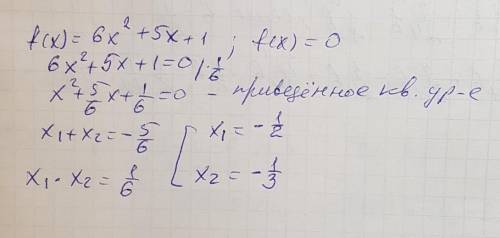 f(x) = 6x² + 5x + 1 ; f(x) = 0
6x² + 5x + 1 = 0 / · 1/6
x² + 5/6 x + 1/6 = 0 - приведённое кв. ур-е
x₁ + x₂ = - 5/6 [ x₁ = - 1/2
x₁ · x₂ = 1/6 x₂ = - 1/3